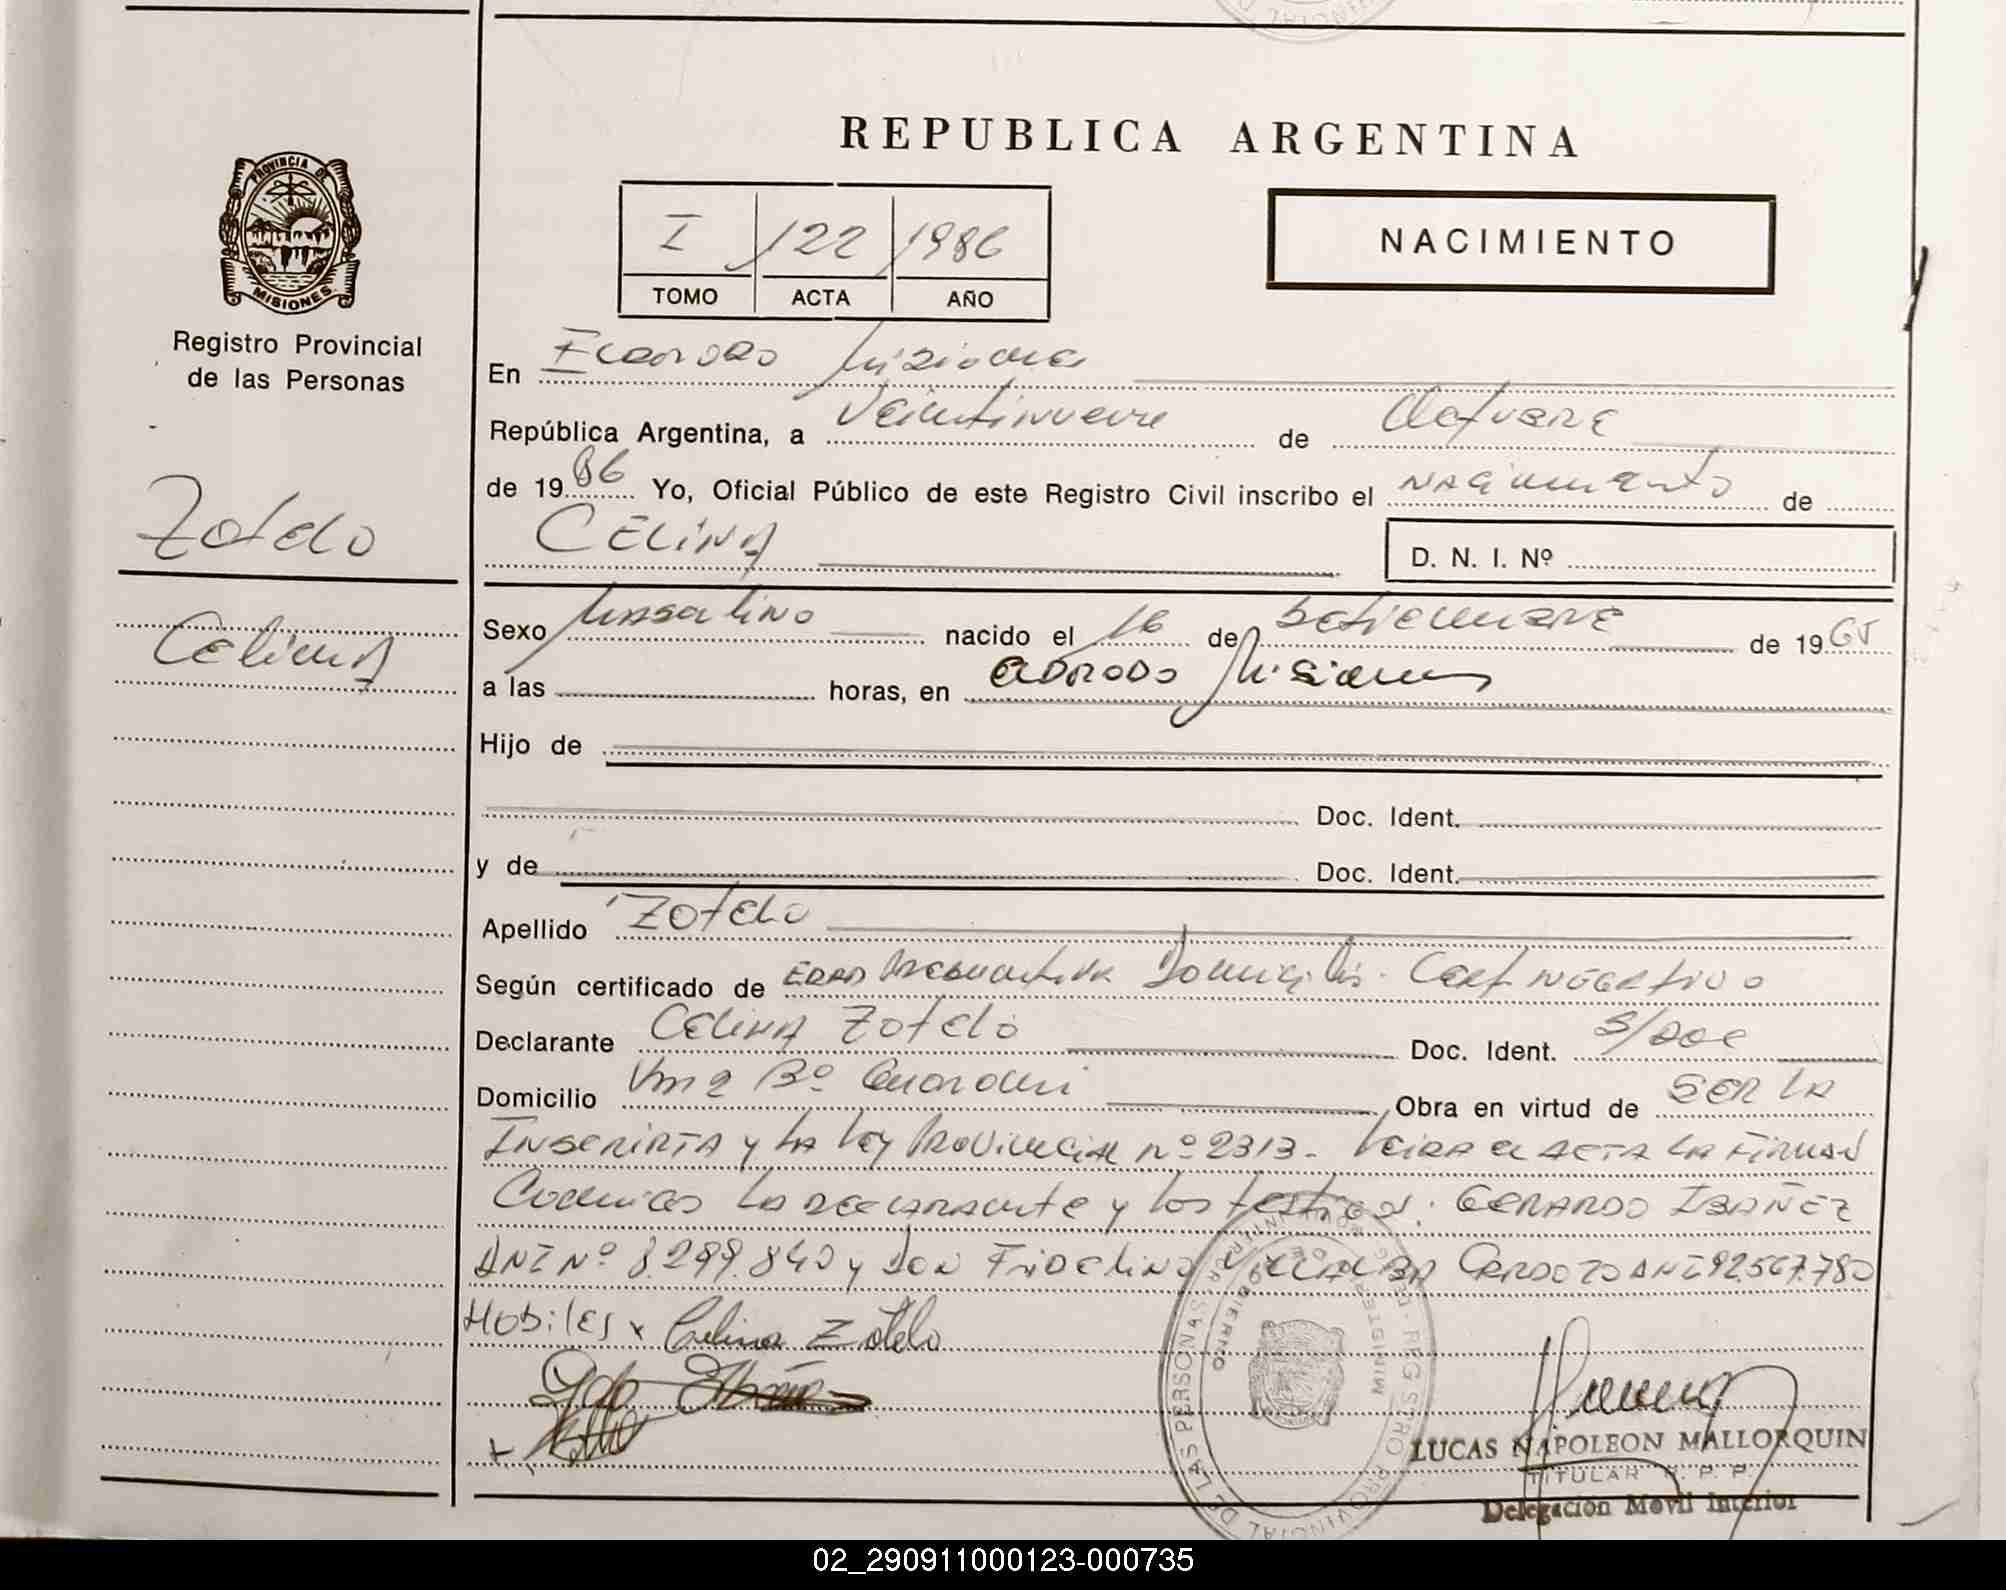 REPUBLICA ARGENTINA
PROVINCIA DE
MISIONES
Registro Provincial
de las Personas
I 122 1986
TOMO ACTA AÑO
NACIMIENTO
En Eldorado Misiones
República Argentina, a Veintinueve de Octubre
de 1986 Yo, Oficial Público de este Registro Civil inscribo el nacimiento de
CELINA
D. N. I. Nº
Zotelo
Celina
Sexo Masculino nacido el 16 de Setiembre de 1965
a las horas, en Eldorado Misiones
Hijo de
Doc. Ident.
y de Doc. Ident.
Apellido Zotelo
Según certificado de EDAD Presuntiva Domicilio. Cert Negativo
Declarante Celina Zotelo Doc. Ident. S/Doc
Domicilio Bº Guarani Obra en virtud de SER LA
INSCRIPTA y LA Ley Provincial nº 2313. Leida el ACTA LA FIRMAN
Conmigo La declarante y los testigos. GERARDO IBAÑEZ
DNI Nº 8.299.840 y Don Fidelino Villalba Cardozo DNI 92.567.780
Hobiles x Celina Zotelo
LUCAS NAPOLEON MALLORQUIN
TITULAR R. P. P.
Delegación Móvil Interior
02_290911000123-000735